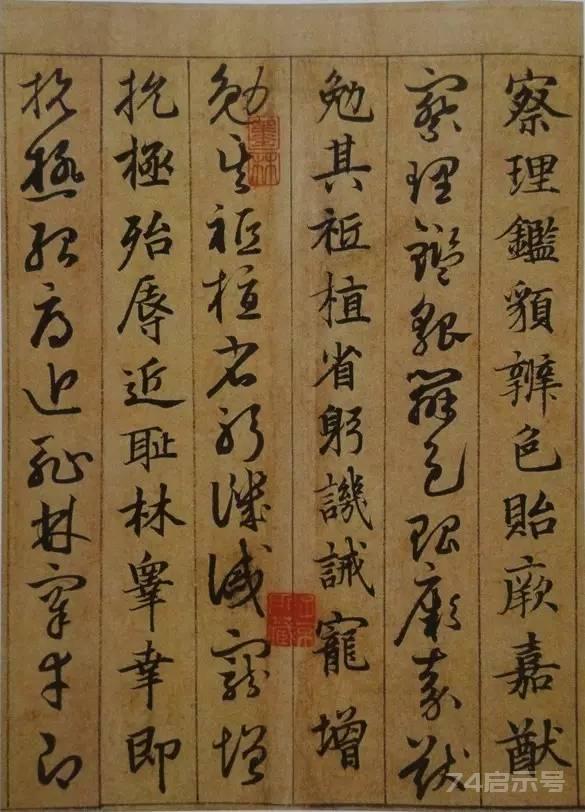 察理鑑貌辨色貽厥嘉猷
察理鑑貌辨色貽厥嘉猷
勉其祗植省躬譏誡寵增
勉其祗植省躬譏誡寵增
抗極殆辱近耻林睾幸即
抗極殆辱近耻林睾幸即
74启示号